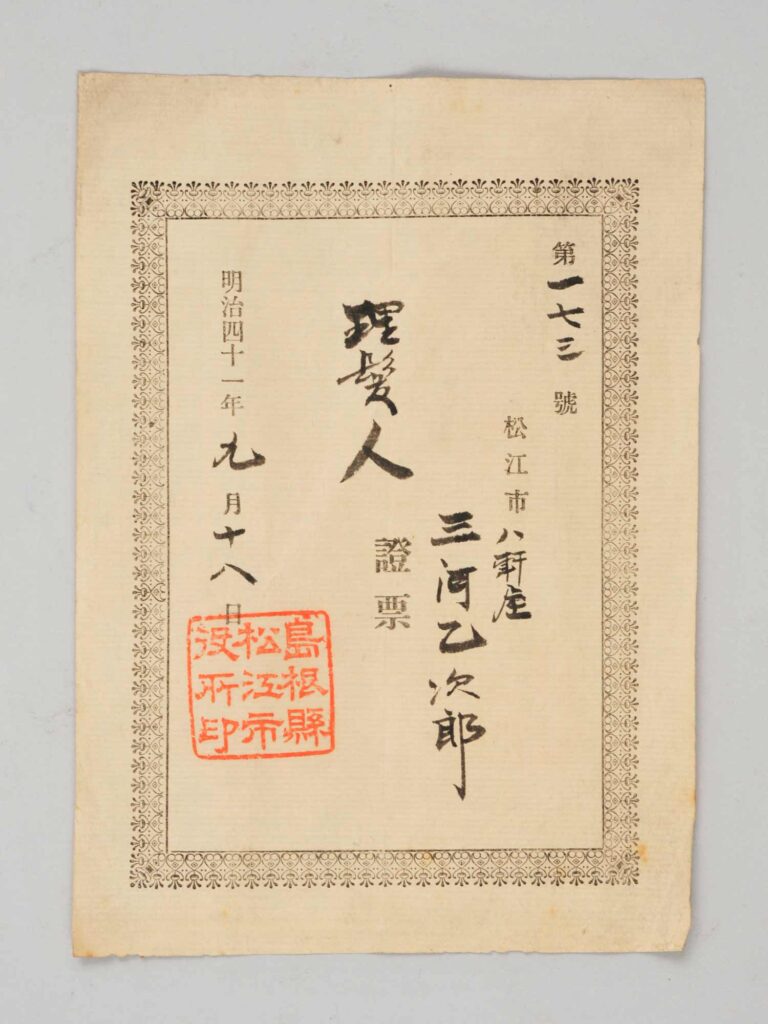 第一七三號
松江市八軒屋
三河乙次郎
理髮人證票
明治四十一年九月十八日
島根縣
松江市
役所印